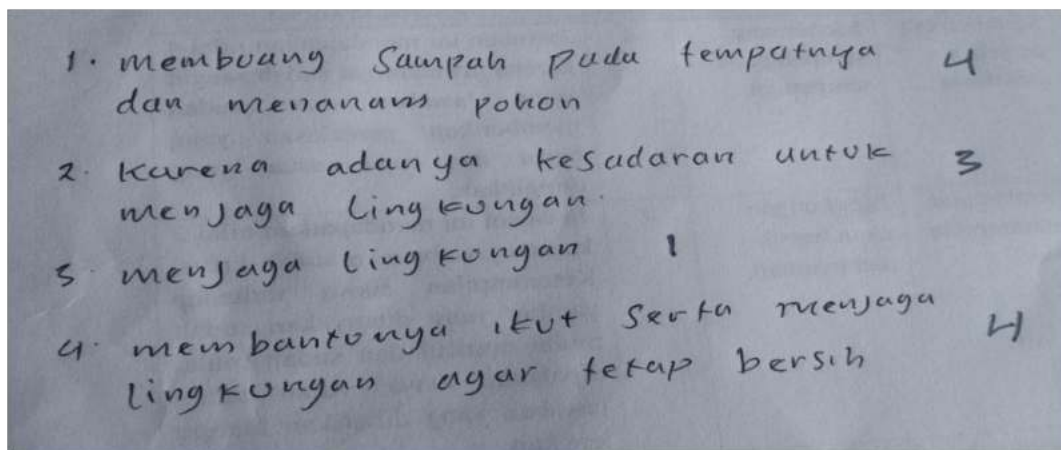 1. membuang Sampah pada tempatnya 4
dan menanam pohon
2. Karena adanya kesadaran untuk 3
menjaga lingkungan.
3. menjaga lingkungan 1
4. membantunya ikut serta menjaga 4
lingkungan agar tetap bersih